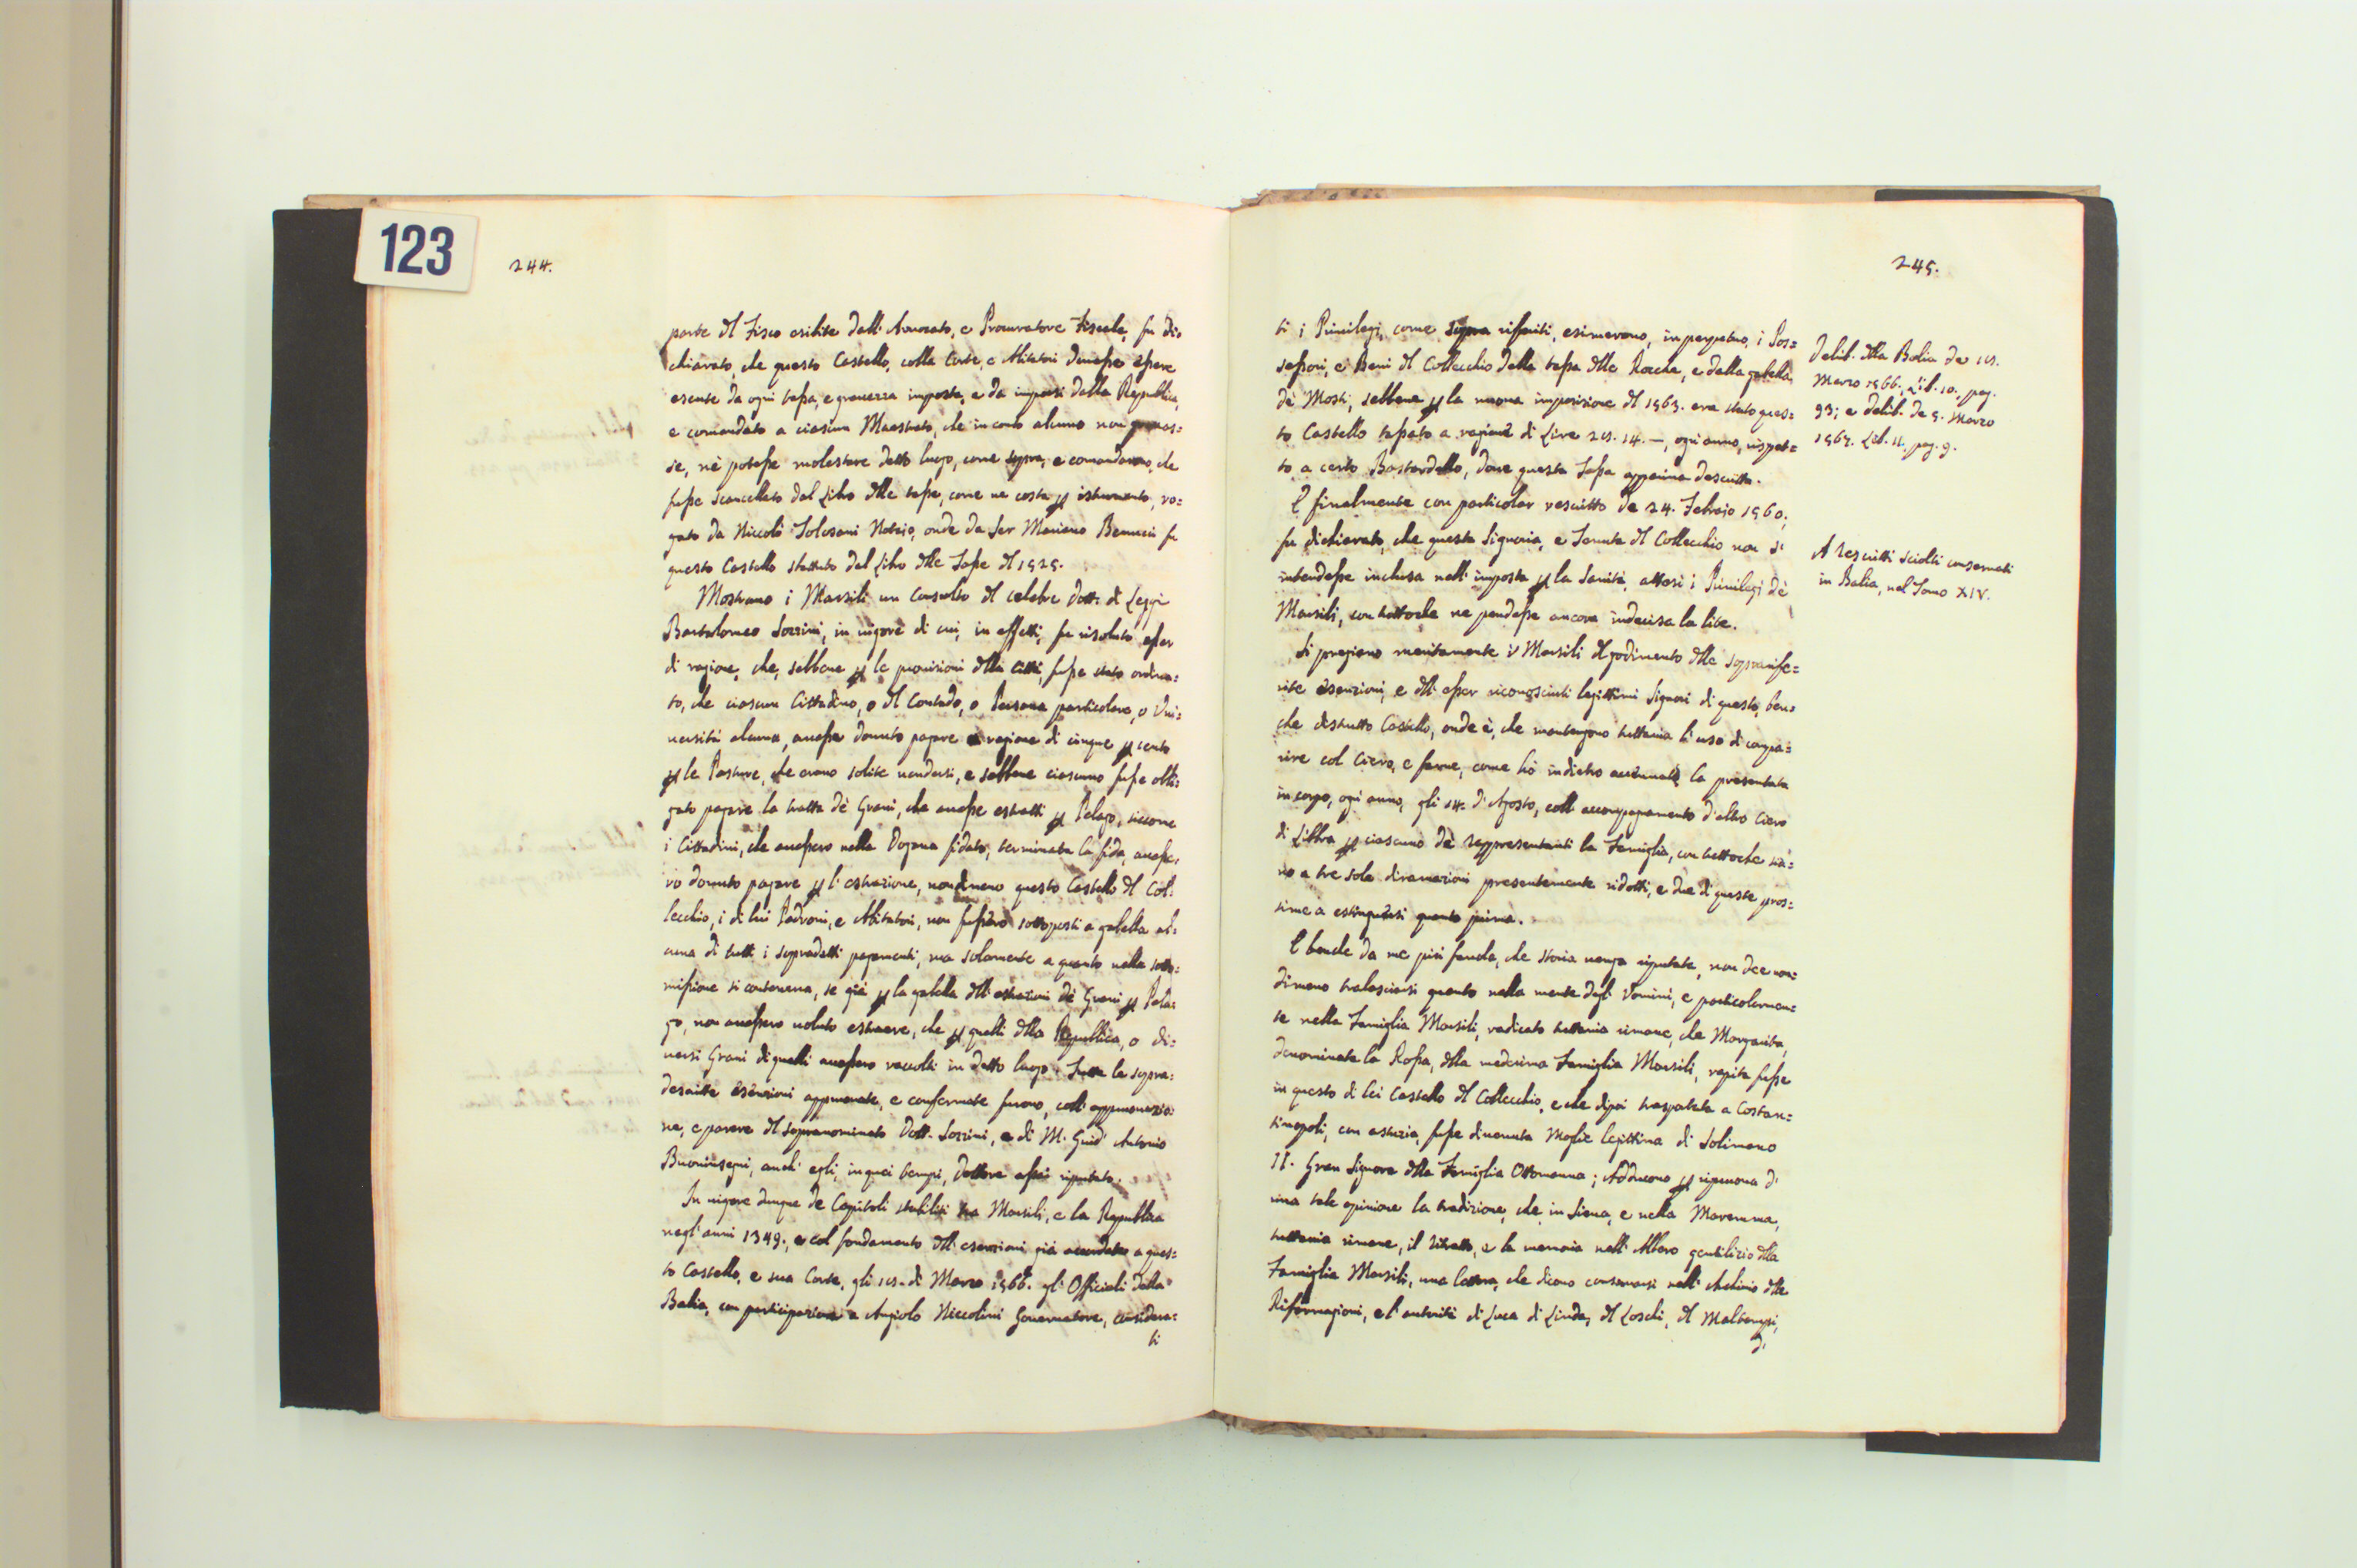 123
244.
parte dl Fisco esibite dall' Avvocato, e Procuratore Fiscale, fu di=
chiarato, che questo Castello, colla Corte, e Abitatori dovesse essere
esente da ogni tassa, e gravezza imposta, e da imporsi dalla Repubblica,
e comandato a ciascun Maestrato, che in conto alcuno non
se, nè potesse molestare detto luogo, come sopra, e comandarono, che
fusse scancellato dal Libro dlle tasse, come ne costa p istrumento, ro=
gato da Niccolò Tolosani Notaio, onde da Ser Mariano Bennucci fu
questo Castello sbattuto dal Libro dlle Tasse dl 1525.
Mostrano i Marsili un Consulto dl celebre Dott: di Leggi
Bartolomeo Sozzini, in vigore di cui, in effetti, fu risoluto esser
di ragione, che, sebbene p le provisioni dlla Città, fusse stato ordina=
to, che ciascun Cittadino, o dl Contado, o Persona particolare, o Uni=
versità alcuna, avesse dovuto pagare a ragione di cinque p cento
p le Pasture, che erano solite vendersi, e sebbene ciascuno fusse obbli=
gato pagare la tratta dè Grani, che avesse estratti p Pelago, siccome
i Cittadini, che avessero nella Dogana fidato, terminata la fida, avesse=
ro dovuto pagare p l' estrazione, nondimeno questo Castello dl Col=
lecchio, i di lui Padroni, e Abitatori, non fussero sottoposti a gabella al=
cuna di tutti i sopradetti pagamenti, ma solamente a quanto nella sotto=
missione si conteneva, se già p la gabella dll' estrazioni dè Grani p Pela=
go, non avessero voluto estraere, che p quelli dlla Repubblica, o di=
versi Grani di quelli avessero raccolti in detto luogo. Tutte le sopra=
descritte esenzioni approvate, e confermate furono, coll' approvazio=
ne, e parere dl sopranominato Dott. Sozzini, e di M. Guid' Antonio
Buoninsegni, anch' egli, in quei tempi, Dottore assai riputato.
In vigore dunque de Capitoli stabiliti tra Marsili, e la Repubblica
negl' anni 1349., e col fondamento dll' esenzioni già accordate a ques=
to Castello, e sua Corte, gli 15. di Marzo 1566. gl' Officiali della
Balia, con participazione a Angiolo Niccolini Governatore, considera=
ti
245.
ti i Privilegi, come sopra riferiti, esimerono, in perpetuo, i Pos=
sessori, e Beni dl Collecchio dalla tassa dlle Rocche, e dalla gabella
dè Mosti, sebbene p la nuova imposizione dl 1563. era stato ques=
to Castello tassato a ragione di Lire 25. 14. —, ogni anno, rispet=
to a certo Bastardello, dove questa Tassa appariva descritta.
E finalmente con particolar rescritto de 24. Febraio 1560,
fu dichiarato, che questa Signoria, e Tenuta dl Collecchio non s'
intendesse inclusa nell' imposta p la Sanità, attesi i Privilegi dè
Marsili, con tuttoche ne pendesse ancora indecisa la lite.
Si pregiano meritamente i Marsili dl godimento dlle soprarife=
rite esenzioni, e dll' esser riconosciuti legittimi Signori di questo, ben=
che distrutto Castello, onde è, che mantengono tuttavia l' uso di compa=
rire col Ciero, e farne, come hò indietro accennato, la presentata
in corpo, ogni anno, gli 14. d' Agosto, coll' accompagnamento d' altro Ciero
di Libbra p ciascuno dè rappresentanti la Famiglia, con tuttoche sia=
no a tre sole diramazioni presentemente ridotti, e due di queste pros=
sime a estinguersi quanto prima.
E benche da me più favola, che storia venga riputata, non dee non=
dimeno tralasciarsi quanto nella mente degl' Vomini, e particolarmen=
te nella Famiglia Marsili, radicato tuttavia rimane, che Margarita,
denominata la Rossa, dlla medesima Famiglia Marsili, rapita fusse
in questo di lei Castello dl Collecchio, e che dipoi trasportata a Costan=
tinopoli, con astuzia, fusse divenuta Moglie legittima di Solimano
II. Gran Signore dlla Famiglia Ottomanna; Adducono p riprova d'
una tale opinione la tradizione, che in Siena, e nella Maremma,
tuttavia rimane, il ritratto, e la memoria nell' Albero gentilizio dlla
Famiglia Marsili, una lettera, che dicono conservarsi nell' Archivio dlle
Riformagioni, e l' autorità di Luca di Linda, dl Loschi, dl Malvezzi,
d'
Delib. dlla Balia de 15.
Marzo 1566. Lib. 10. pag.
93; e delib. de 5. Marzo
1567. Lib. 11. pag. 9.
A Rescritti sciolti conservati
in Balia, nel Tomo XIV.